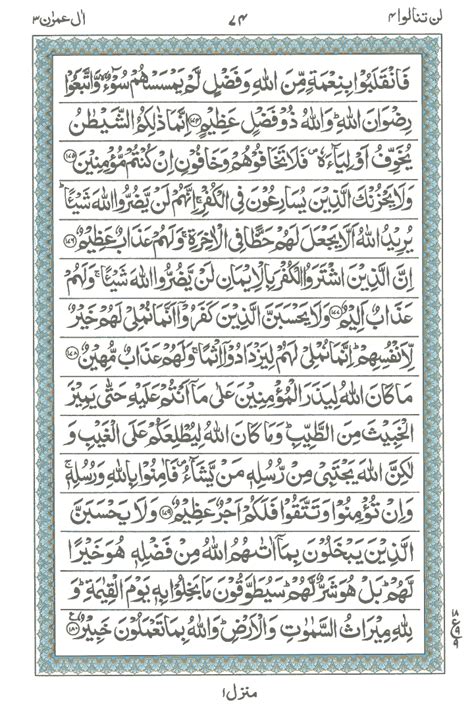 لن تنالوا ٤
٧٤
اٰل عمرٰن ٣
فَانْقَلَبُوْا بِنِعْمَةٍ مِّنَ اللّٰهِ وَفَضْلٍ لَّمْ يَمْسَسْهُمْ سُوْٓءٌ ۙ وَّاتَّبَعُوْا
رِضْوَانَ اللّٰهِ ؕ وَاللّٰهُ ذُوْ فَضْلٍ عَظِيْمٍ ﴿١٧٤﴾ اِنَّمَا ذٰلِكُمُ الشَّيْطٰنُ
يُخَوِّفُ اَوْلِيَآءَهٗ ۪ فَلَا تَخَافُوْهُمْ وَخَافُوْنِ اِنْ كُنْتُمْ مُّؤْمِنِيْنَ ﴿١٧٥﴾
وَلَا يَحْزُنْكَ الَّذِيْنَ يُسَارِعُوْنَ فِى الْكُفْرِ ۚ اِنَّهُمْ لَنْ يَّضُرُّوا اللّٰهَ شَيْـًٔا ؕ
يُرِيْدُ اللّٰهُ اَلَّا يَجْعَلَ لَهُمْ حَظًّا فِى الْاٰخِرَةِ ۚ وَلَهُمْ عَذَابٌ عَظِيْمٌ ﴿١٧٦﴾
اِنَّ الَّذِيْنَ اشْتَرَوُا الْكُفْرَ بِالْاِيْمَانِ لَنْ يَّضُرُّوا اللّٰهَ شَيْـًٔا ۚ وَلَهُمْ
عَذَابٌ اَلِيْمٌ ﴿١٧٧﴾ وَلَا يَحْسَبَنَّ الَّذِيْنَ كَفَرُوْۤا اَنَّمَا نُمْلِىْ لَهُمْ خَيْرٌ
لِّاَنْفُسِهِمْ ؕ اِنَّمَا نُمْلِىْ لَهُمْ لِيَزْدَادُوْۤا اِثْمًا ۚ وَلَهُمْ عَذَابٌ مُّهِيْنٌ ﴿١٧٨﴾
مَا كَانَ اللّٰهُ لِيَذَرَ الْمُؤْمِنِيْنَ عَلٰى مَاۤ اَنْتُمْ عَلَيْهِ حَتّٰى يَمِيْزَ
الْخَبِيْثَ مِنَ الطَّيِّبِ ؕ وَمَا كَانَ اللّٰهُ لِيُطْلِعَكُمْ عَلَى الْغَيْبِ وَ
لٰكِنَّ اللّٰهَ يَجْتَبِىْ مِنْ رُّسُلِهٖ مَنْ يَّشَآءُ ۪ فَاٰمِنُوْا بِاللّٰهِ وَرُسُلِهٖ ۚ
وَاِنْ تُؤْمِنُوْا وَتَتَّقُوْا فَلَكُمْ اَجْرٌ عَظِيْمٌ ﴿١٧٩﴾ وَلَا يَحْسَبَنَّ
الَّذِيْنَ يَبْخَلُوْنَ بِمَاۤ اٰتٰىهُمُ اللّٰهُ مِنْ فَضْلِهٖ هُوَ خَيْرًا
لَّهُمْ ؕ بَلْ هُوَ شَرٌّ لَّهُمْ ؕ سَيُطَوَّقُوْنَ مَا بَخِلُوْا بِهٖ يَوْمَ الْقِيٰمَةِ ؕ وَ
لِلّٰهِ مِيْرَاثُ السَّمٰوٰتِ وَالْاَرْضِ ؕ وَاللّٰهُ بِمَا تَعْمَلُوْنَ خَبِيْرٌ ﴿١٨٠﴾
١٨
ع
٩
٩
منزل ١